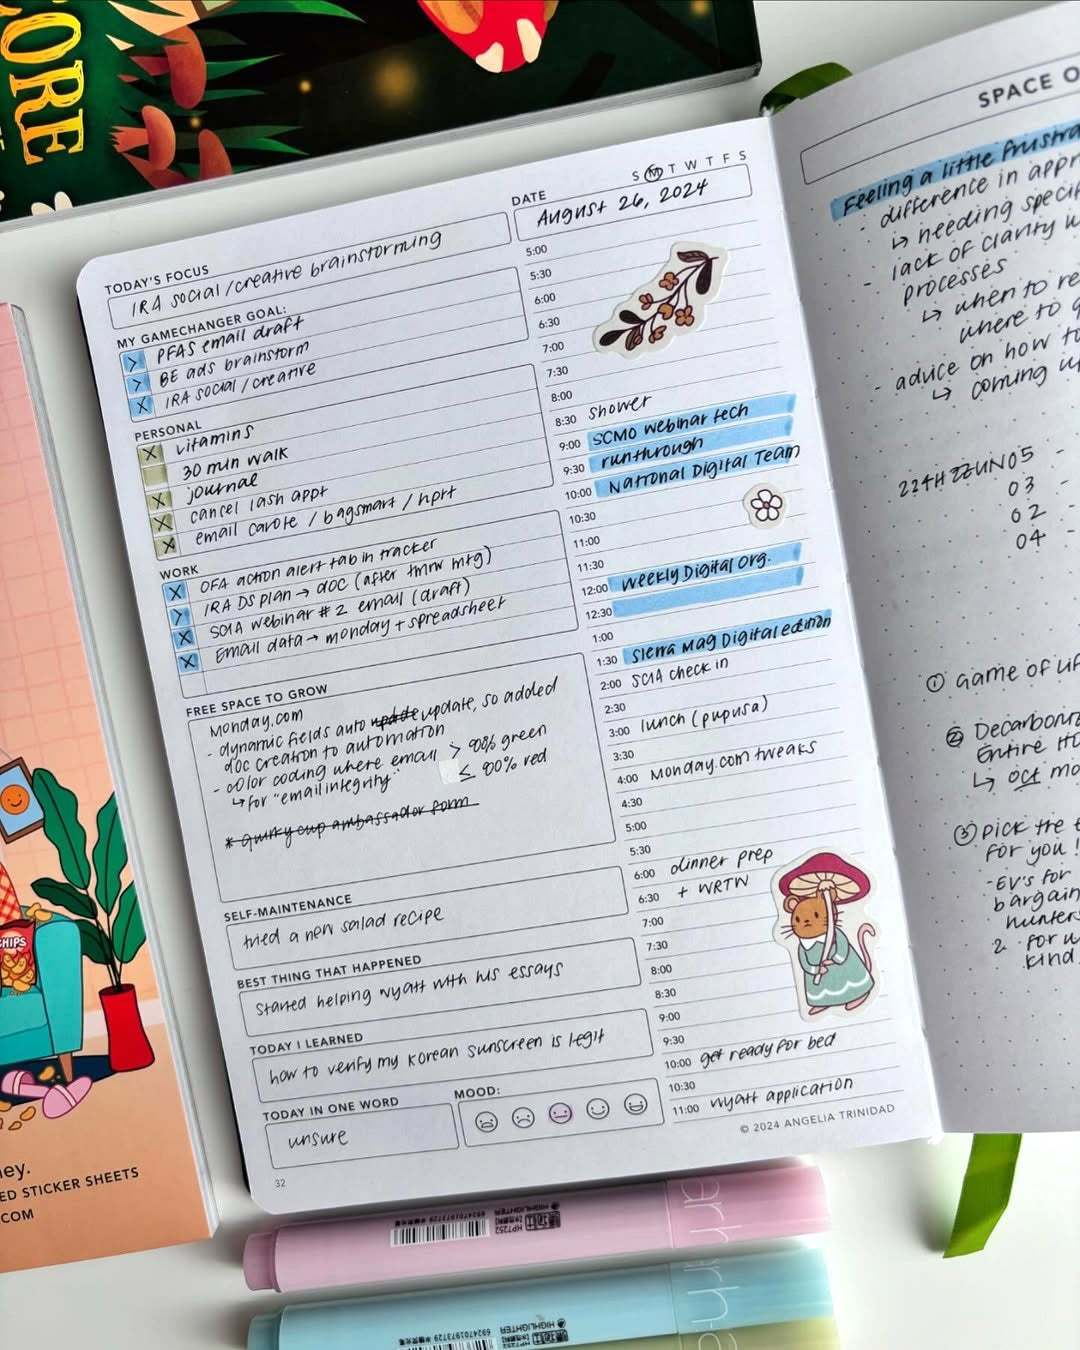 ORE
SPACE O
S M T W T F S
DATE
August 26, 2024
TODAY'S FOCUS
IRA social/creative brainstorming
MY GAMECHANGER GOAL:
> PFAS email draft
> BE ads brainstorm
X IRA social/creative
PERSONAL
X vitamins
30 min walk
X journal
X cancel lash appt
X email carote / bagsmart / hprt
WORK
X OFA action alert tab in tracker
> IRA DS plan → doc (after tmrw mtg)
X SCIA webinar #2 email (draft)
X Email data → monday + spreadsheet
FREE SPACE TO GROW
Monday.com
- dynamic fields auto update update, so added
doc creation to automation
- color coding where email > 90% green
↳ for "email integrity" ≤ 90% red
* quirky cup ambassador form
SELF-MAINTENANCE
tried a new salad recipe
BEST THING THAT HAPPENED
started helping wyatt with his essays
TODAY I LEARNED
how to verify my korean sunscreen is legit
TODAY IN ONE WORD
unsure
MOOD:
32
5:00
5:30
6:00
6:30
7:00
7:30
8:00
8:30 shower
9:00 SCMO webinar tech
9:30 runthrough
10:00 National Digital Team
10:30
11:00
11:30
12:00 weekly Digital Org.
12:30
1:00
1:30 Sierra Mag Digital edition
2:00 SCIA check in
2:30
3:00 lunch (pupusa)
3:30
4:00 Monday.com tweaks
4:30
5:00
5:30
6:00 dinner prep
6:30 + WRTW
7:00
7:30
8:00
8:30
9:00
9:30
10:00 get ready for bed
10:30
11:00 wyatt application
© 2024 ANGELIA TRINIDAD
Feeling a little frustra
- difference in appr
↳ needing specif
- lack of clarity w
processes
↳ when to re
where to
- advice on how to
↳ coming u
224HZZUN05 -
03 -
02 -
04 -
① Game of Lif
② Decarbon
Entire H
↳ oct mo
③ pick the
for you!
- EV's for
bargain
hunters
2. for w
kind
CHIPS
ey.
ED STICKER SHEETS
COM
HIGHLIGHTER
HP7252
6924701973729
HIGHLIGHTER
HP7252
6924701973729